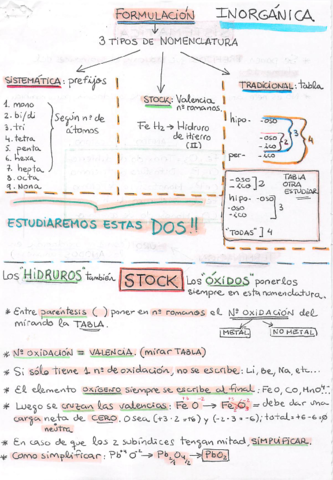 FORMULACIÓN INORGÁNICA.
3 TIPOS DE NOMENCLATURA
SISTEMÁTICA: prefijos
1. mono
2. bi/di
3. tri
4. tetra
5. penta
6. hexa
7. hepta
8. octa
9. nona
Según nº de átomos
STOCK: Valencia
nº romanos.
FeH₂ → Hidruro
de Hierro
(II)
TRADICIONAL: tabla
hipo- -oso
-oso
-ico
per- -ico
2
3
4
-oso
-ico
] 2
hipo- -oso
-oso
-ico
] 3
"TODAS" ] 4
TABLA
OTRA
ESTUDIAR.
ESTUDIAREMOS ESTAS DOS!!
Los "HIDRUROS" también STOCK Los "ÓXIDOS" ponerlos
siempre en esta nomenclatura.
* Entre paréntesis ( ) poner en nº romanos el Nº OXIDACIÓN del
mirando la TABLA.
METAL NO METAL
* Nº OXIDACIÓN = VALENCIA. (mirar TABLA)
* Si sólo tiene 1 nº de oxidación, no se escribe: Li, Be, Na, etc...
* El elemento OXÍGENO siempre se escribe al final: FeO, CO, HNO...
* Luego se cruzan las valencias: Fe O → Fe₂O₃ = debe dar una
carga neta de CERO. O sea, (+3·2=+6) y (-2·3=-6); total=+6-6=0
neutra
* En caso de que los 2 subíndices tengan mitad, SIMPLIFICAR.
* Como simplificar: Pb⁺⁴O⁻² → Pb₂O₄ → PbO₂